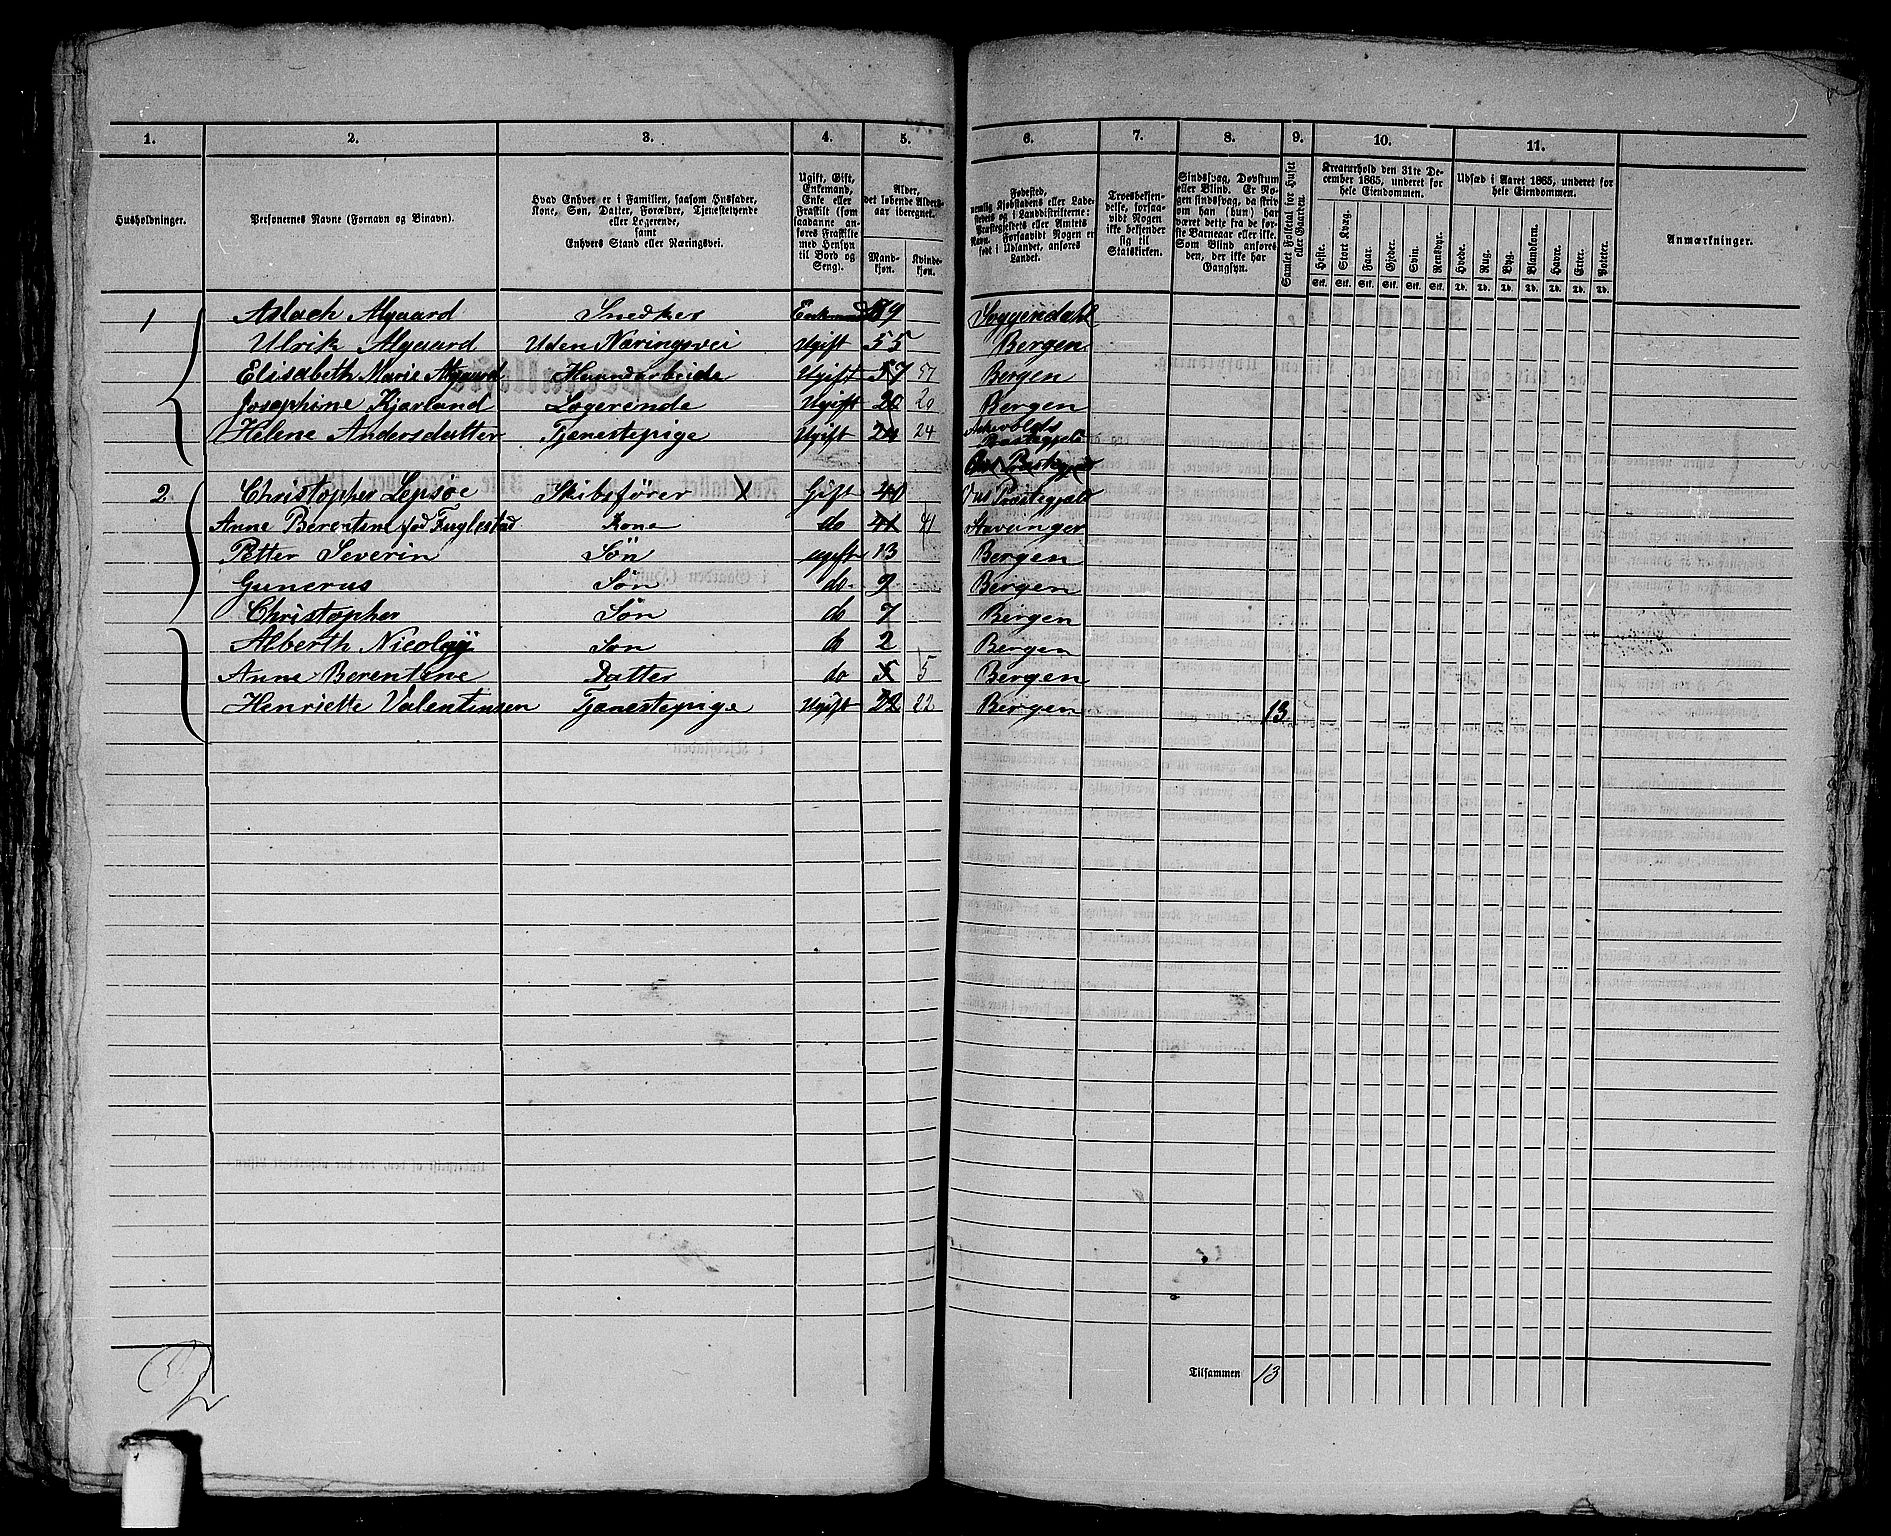 1. 2. 3. 4. 5. 6. 7. 8. 9. 10. 11.
Husholdninger.
Personernes Navne (Fornavn og Binavn).
Hvad Enhver er i Familien, saasom Husfader,
Kone, Søn, Datter, Forældre, Tjenestetyende
eller Logerende,
samt
Enhvers Stand eller Næringsvei.
Ugift, Gift,
Enkemand,
Enke eller
Fraskilt (som
saadanne an-
føres Fraskilte
med Hensyn
til Bord og
Seng).
Alder,
det løbende Alders-
aar iberegnet.
Mand-
kjøn.
Kvinde-
kjøn.
Fødested,
nemlig Kjøbstadens eller Lade-
stedets og i Landdistrikterne:
Præstegjeldets eller Amtets
Navn. Forsaavidt Nogen er
født i Udlandet, anføres
Landet.
Troesbekjen-
delse, forsaa-
vidt Nogen
ikke bekjender
sig til
Statskirken.
Sindssvag, Døvstum
eller Blind. Er No-
gen sindssvag, da skriv
om han (hun) har
været dette fra de før-
ste Barneaar eller ikke.
Som Blind anføres
den, der ikke har
Gangsyn.
Samlet Folketal for Huset
eller Gaarden.
Kreaturhold den 31te De-
cember 1865, underet for
hele Eiendommen.
Heste. Stort Kvæg. Faar. Gjeder. Svin. Rensdyr.
Stk. Stk. Stk. Stk. Stk. Stk.
Udsæd i Aaret 1865, underet for
hele Eiendommen.
Hvede. Rug. Byg. Blandkorn. Havre. Erter. Poteter.
Td. Td. Td. Td. Td. Td. Td.
Anmærkninger.
1 Aslach Algaard Snedker Enkemand 89 Soggendahl
Ulrik Algaard Uden Næringsvei Ugift 55 Bergen
Elisabeth Marie Algaard Haandarbeide Ugift 57 57 Bergen
Josephine Kjærland Logerende Ugift 20 20 Bergen
Helene Andersdatter Tjenestepige Ugift 24 24 Præstegjeld
2 Christopher Lepsøe Skibsfører X Gift 40 Ous Præstegjæld
Anne Berentine fød Fuglestad Kone do 41 41 Stavanger
Petter Severin Søn ugift 13 Bergen
Gunerus Søn do 9 Bergen
Christopher Søn do 7 Bergen
Alberth Nicolay Søn do 2 Bergen
Anne Berentine Datter do 5 5 Bergen
Henriette Valentinsen Tjenestepige Ugift 22 22 Bergen 13
Tilsammen 13